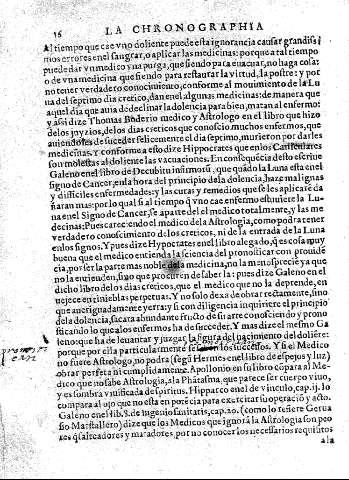 16 LA CHRONOGRAPHIA
Al tiempo que cae vno doliente puede esta ignorancia causar grandissi
mos errores en el sangrar, o aplicar las medicinas: porque a tal tiempo
puede dar vn medico vna purga, que siendo para euacuar, no haga cosa:
o de vna medicina que siendo para restaurar la virtud, la postre: y por
no tener verdadero conocimiento, conforme al mouimiento de la Lu
na del septimo dia cretico, dan en el algunas medicinas: de manera que
aquel dia que auia de declinar la dolencia para bien, matan al enfermo:
y assi dize Thomas Boderio medico y Astrologo en el libro que hizo
de los juyzios, de los dias creticos que conoscio muchos enfermos, que
auiendoles de succeder felicemente el dia septimo, murieron por darles
medicinas. Y conforme a esto dize Hippocrates que en los Caniculares
son molestas al doliente las vacuaciones. En consequẽcia desto escriue
Galeno en el libro de Decubitu infirmorũ, que quãdo la Luna esta en el
signo de Cancer, en la hora del principio de la dolencia, haze malignas
y difficiles enfermedades: y las curas y remedios que se les aplicare da
ñaran mas: por lo qual si al tiempo q̃ vno cae enfermo estuuiere la Lu-
na en el Signo de Cancer, se aparte del el medico totalmente, y las me
decinas: Pues careciendo el medico de la Astrologia, como podra tener
verdadero conocimiento de los creticos, ni de la entrada de la Luna
en los signos. Y pues dize Hypocrates en el libro alegado, q̃ es cosa muy
buena que el medico entienda la sciencia del pronosticar con prouidẽ
cia, por ser la parte mas noble de la medicina, no la menosprecie ya que
no la entienden, sino que procuren de saberla: pues dize Galeno en el
dicho libro de los dias creticos, que el medico que no la deprende, en
uejece en niñeblas perpetuas. Y no solo dexa de obrar rectamente, sino
que aueriguadamente yerra: y si con diligencia inquiriere el principio
de la dolencia, sacara abundante fructo de su arte conosciendo y prono
sticando lo que a los enfermos ha de succeder. Y mas dize el mesmo Ga
leno: que ha de leuantar y juzgar la figura del nacimiento del doliẽte:
porque por ella particularmente se los successos. Y si el Medico
no fuere Astrologo, no podra (segũ Hermes en el libro de espejos y luz)
obrar perfeta ni cumplidamente. Apollonio en su libro cõpara al Me-
dico que no sabe Astrologia, a la Phãtasma, que parece ser cuerpo viuo,
y es sombra vnificada de spiritus. Hippocra en el de vinculo, cap.ij. lo
compara al ojo que no esta en potẽcia para exercitar su operaciõ y acto.
Galeno en el lib.8. de ingenio sanitatis, cap.20. (como lo refiere Gerua
sio Marstallero) dize que los Medicos que ignorã la Astrologia son peo
res q̃ salteadores y matadores, por no conocer los necessarios requisitos
a la